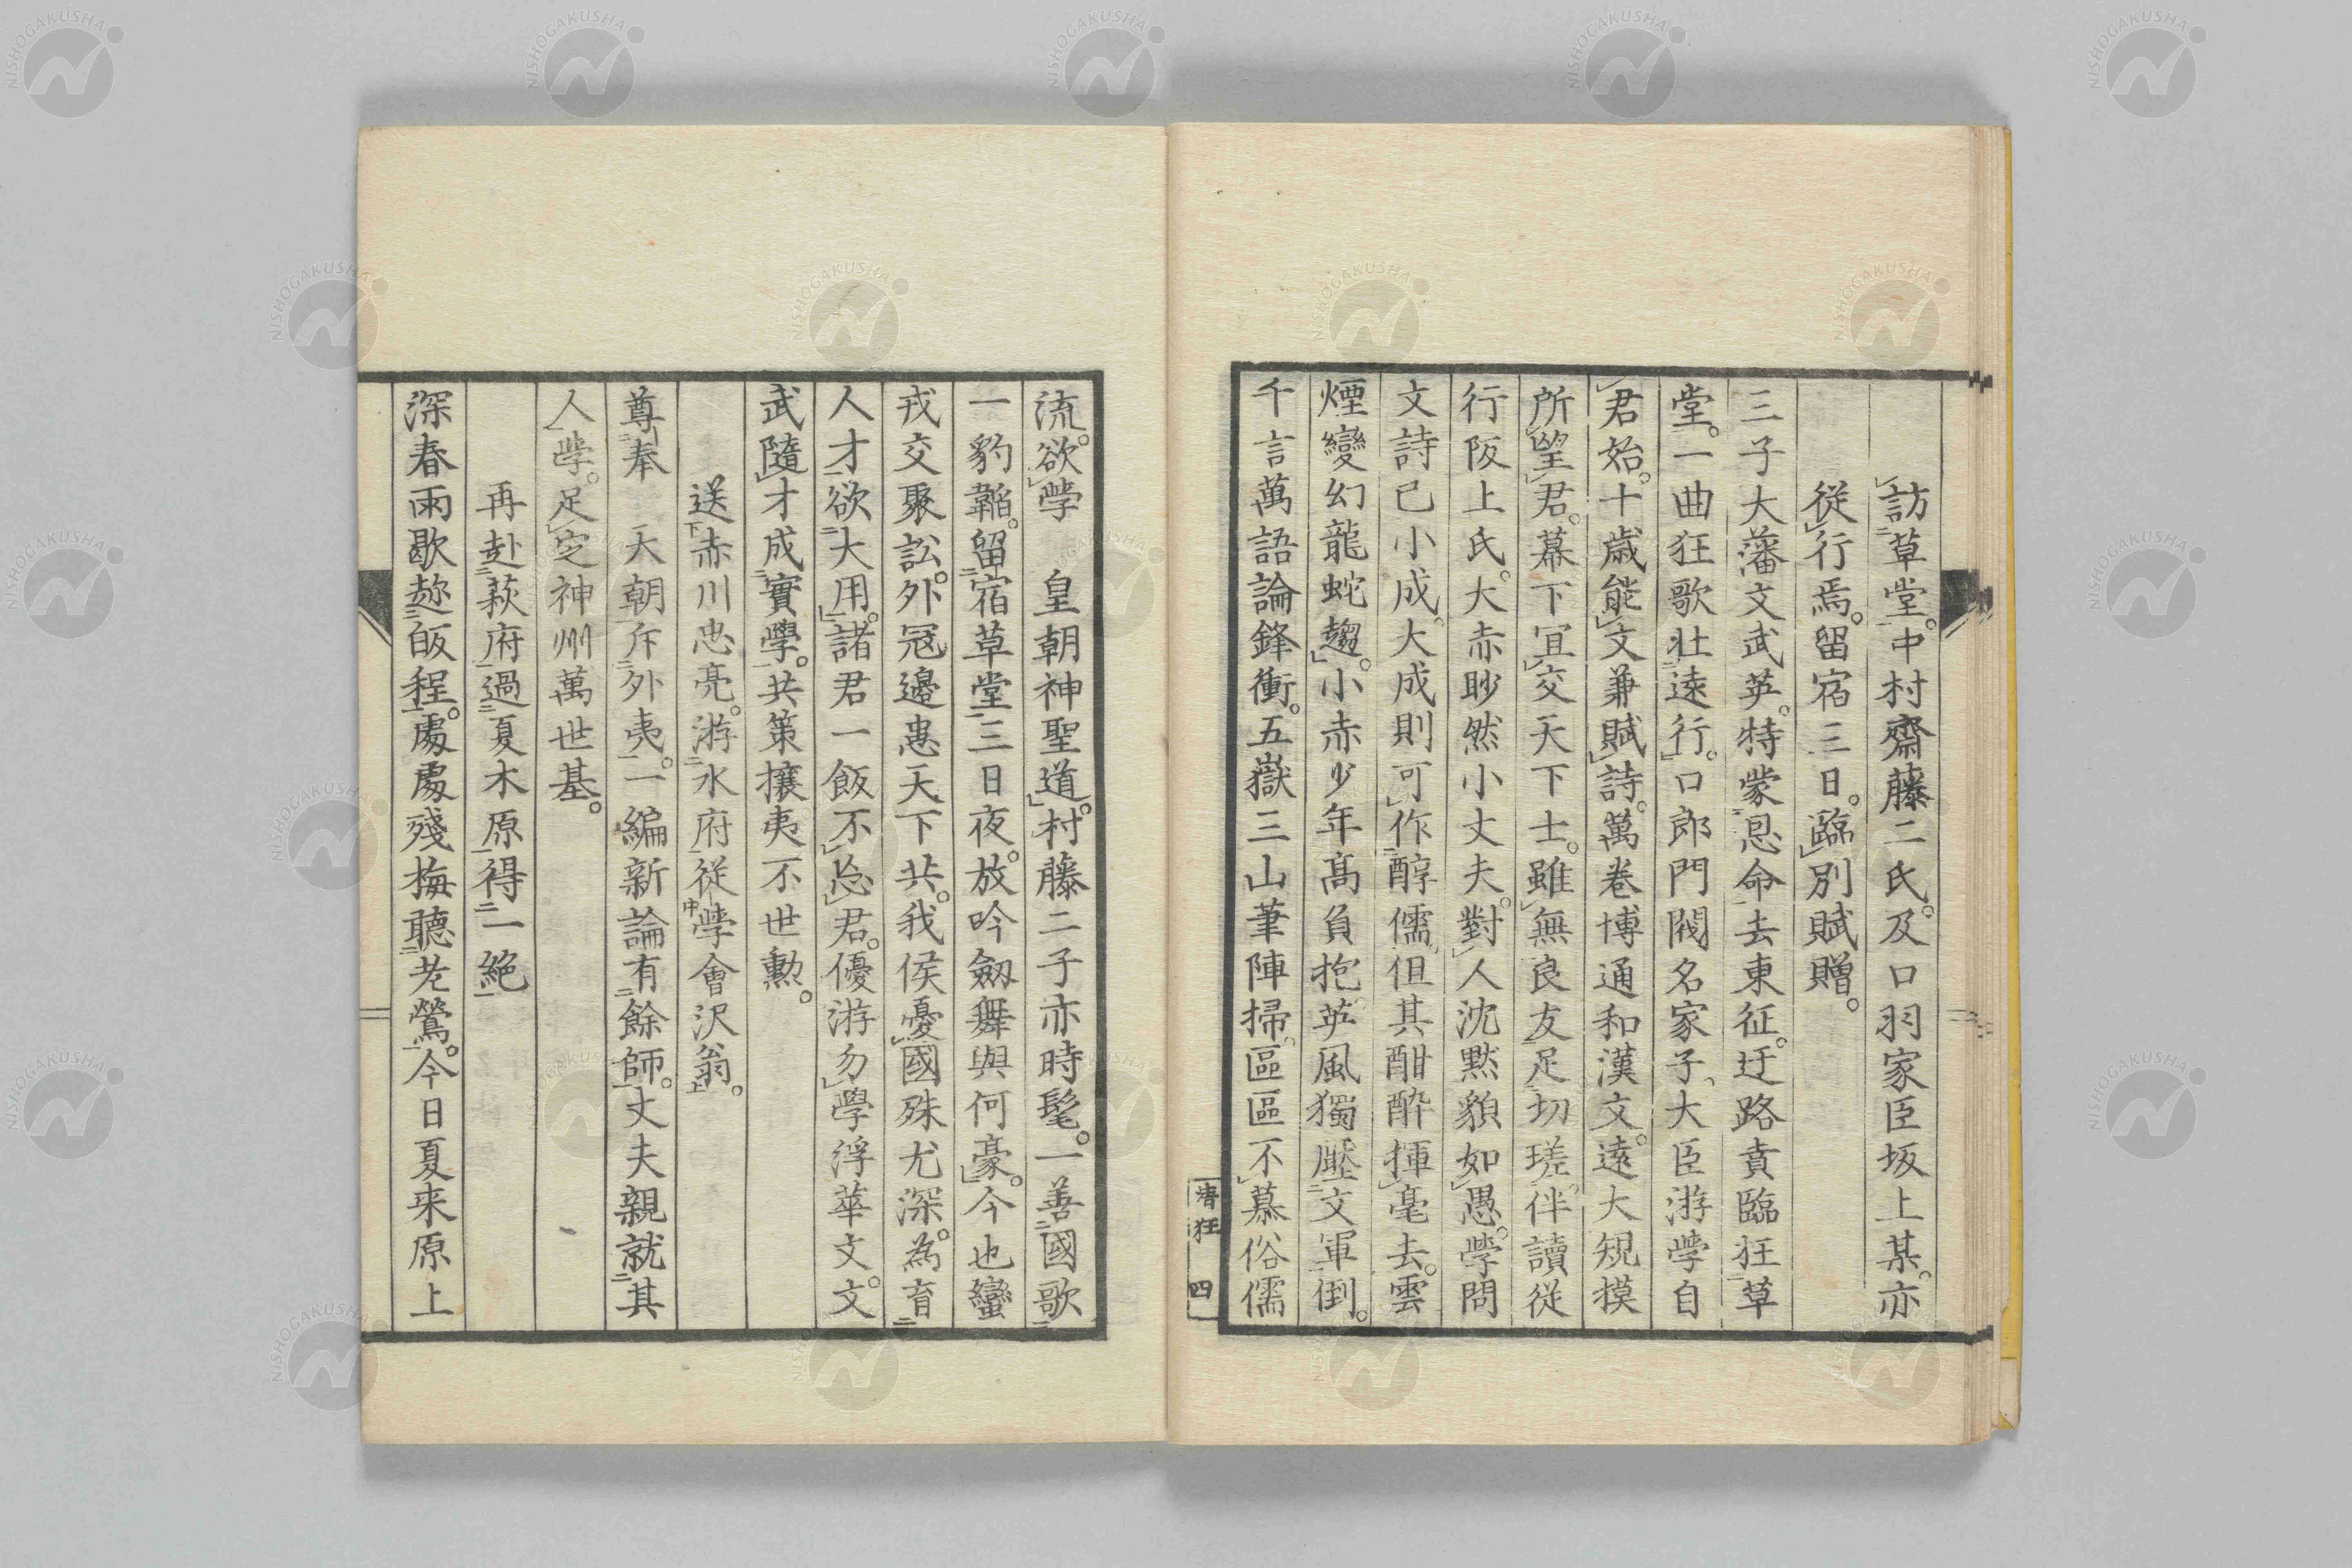 訪草堂。中村齋藤二氏。及口羽家臣坂上某。亦
從行焉。留宿三日。臨別賦贈。
三子大藩文武英。特蒙恩命去東征。迂路賁臨狂草
堂。一曲狂歌壮遠行。口郎門閥名家子、大臣游學自
君始。十歲能文兼賦詩。萬卷博通和漢文。遠大規摸
所望君。幕下宜交天下士。雖無良友足切瑳。伴讀従
行阪上氏。大赤眇然小丈夫。對人沈黙貌如愚。學問
文詩已小成。大成則可作醇儒、但其酣酔揮毫去。雲
煙變幻龍蛇趨。小赤少年髙負抱。英風獨壓文軍倒。
千言萬語論鋒衝。五嶽三山筆陣掃。區區不慕俗儒
清狂 四
流。欲學 皇朝神聖道。村藤二子亦時髦。一善國歌
一豹韜。留宿草堂三日夜。放吟劔舞與何豪。今也蠻
戎交聚訟。外冦邊患天下共。我侯憂國殊尤深。為育
人才欲大用。諸君一飯不忘君。優游勿學浮華文。文
武隨才成實學。共策攘夷不世勲。
送赤川忠亮。游水府從學會沢翁。
尊奉 天朝斥外夷。一編新論有餘師。丈夫親就其
人學。足定神州萬世基。
再赴萩府過夏木原得一絶
深春雨歇趂皈程。處處殘梅聽老鶯。今日夏来原上
NISHOGAKUSHA